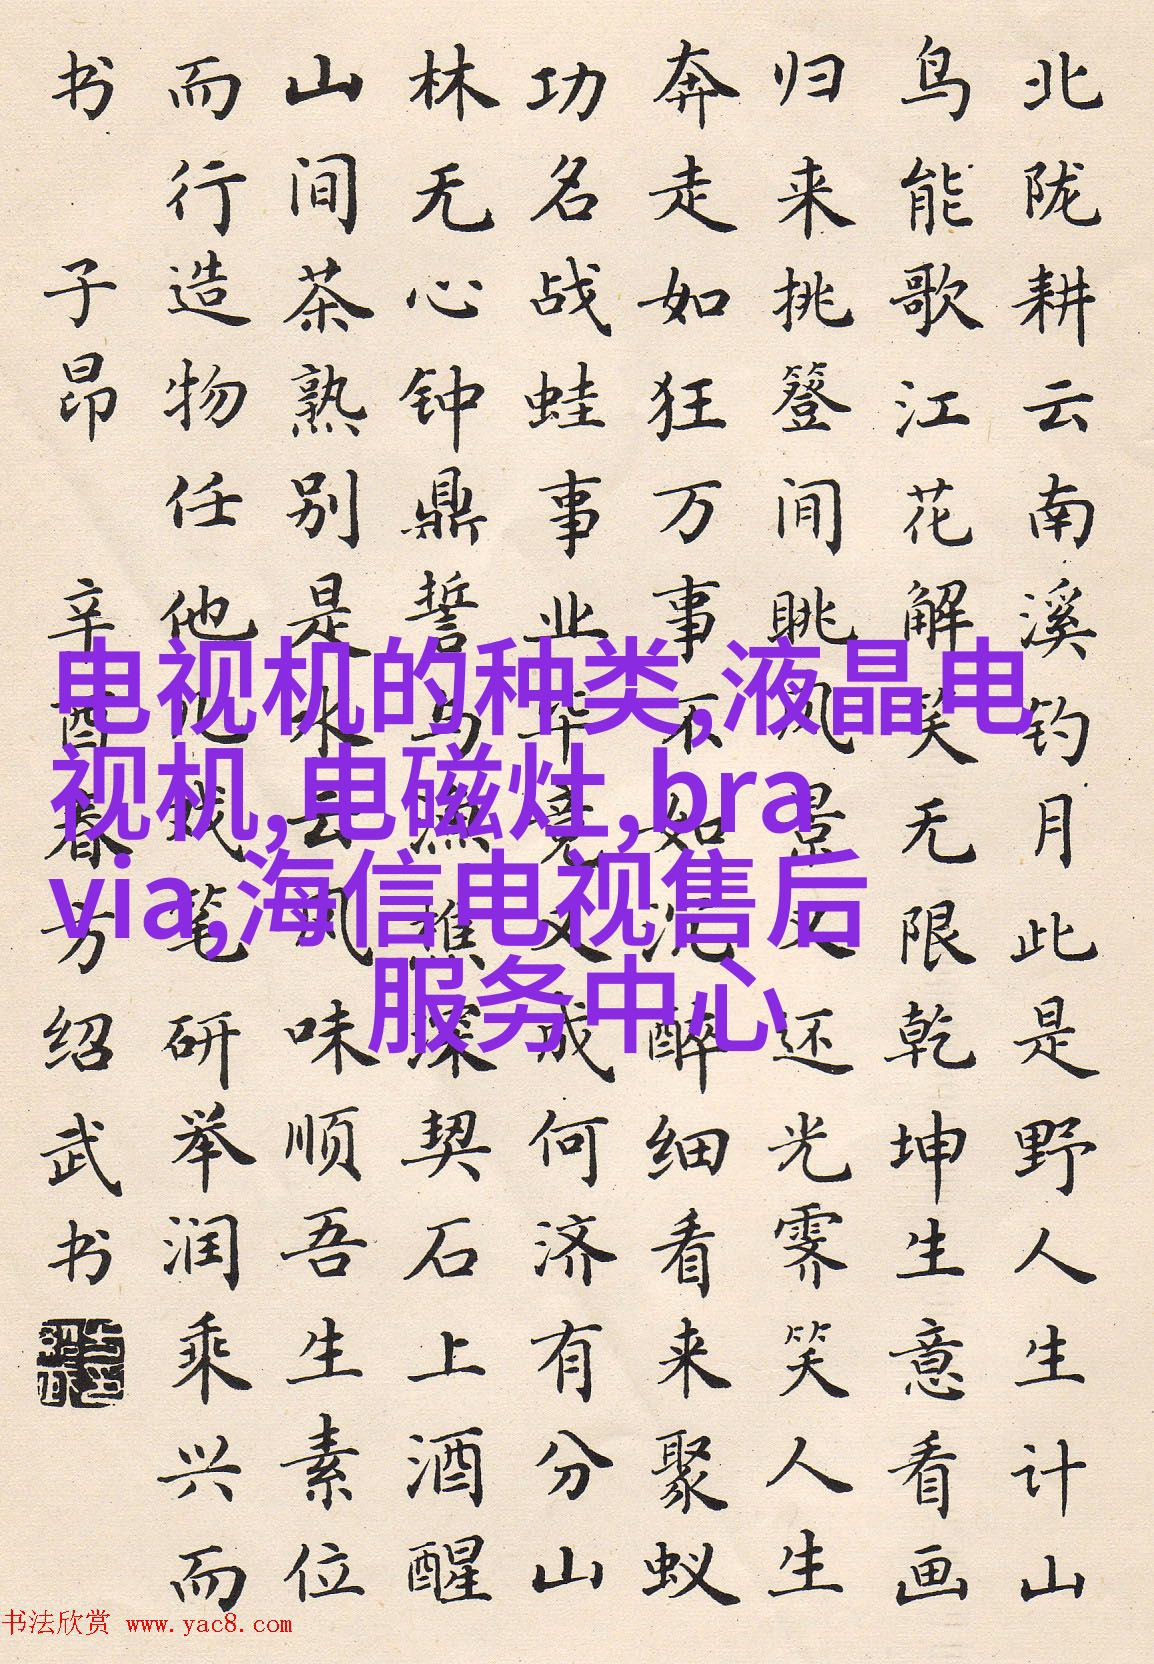 北陇耕云南溪钓月此是野人生计山
鸟能歌江花解笑无限乾坤生意看画
归来挑簦间眺风景又还光霁笑人生
奔走如狂万事不如沉醉细看来聚蚁
功名战蛙事业毕竟又成何济有分山
林无心钟鼎誓与渔樵深契石上酒醒
山间茶熟别是水云风味顺吾生素位
而行造物任他戏笔研举润乘兴而
书 子昂 辛酉春方绍武书
电视机的种类,液晶电
视机,电磁灶,bra
via,海信电视售后
服务中心
书法欣赏 www.yac8.com